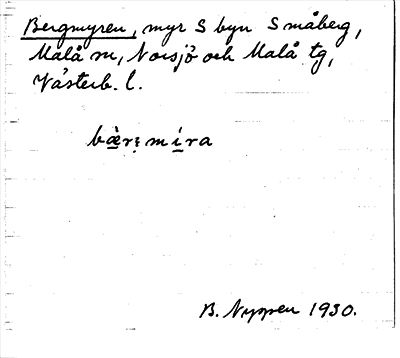 Bergmyren, myr S byn Småberg,
Malå sn, Norsjö och Malå tg,
Västerb. l.
bæ̀r: míra
B. Nyppen 1930.